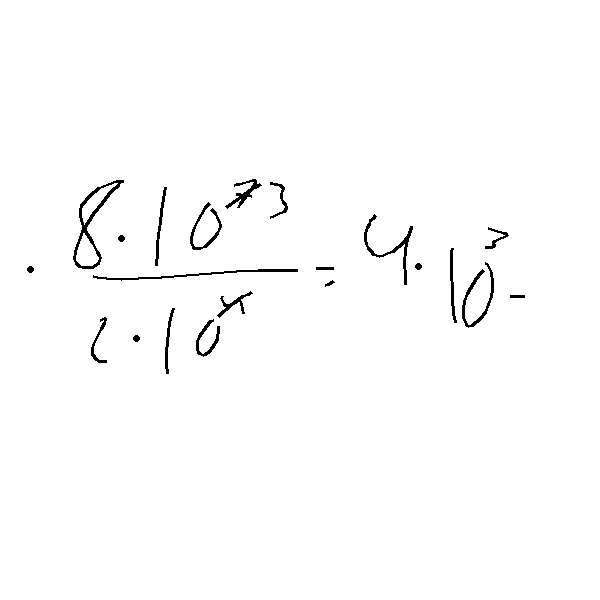 · 8·10^7 3 / 2·10^4 = 4·10^3 -